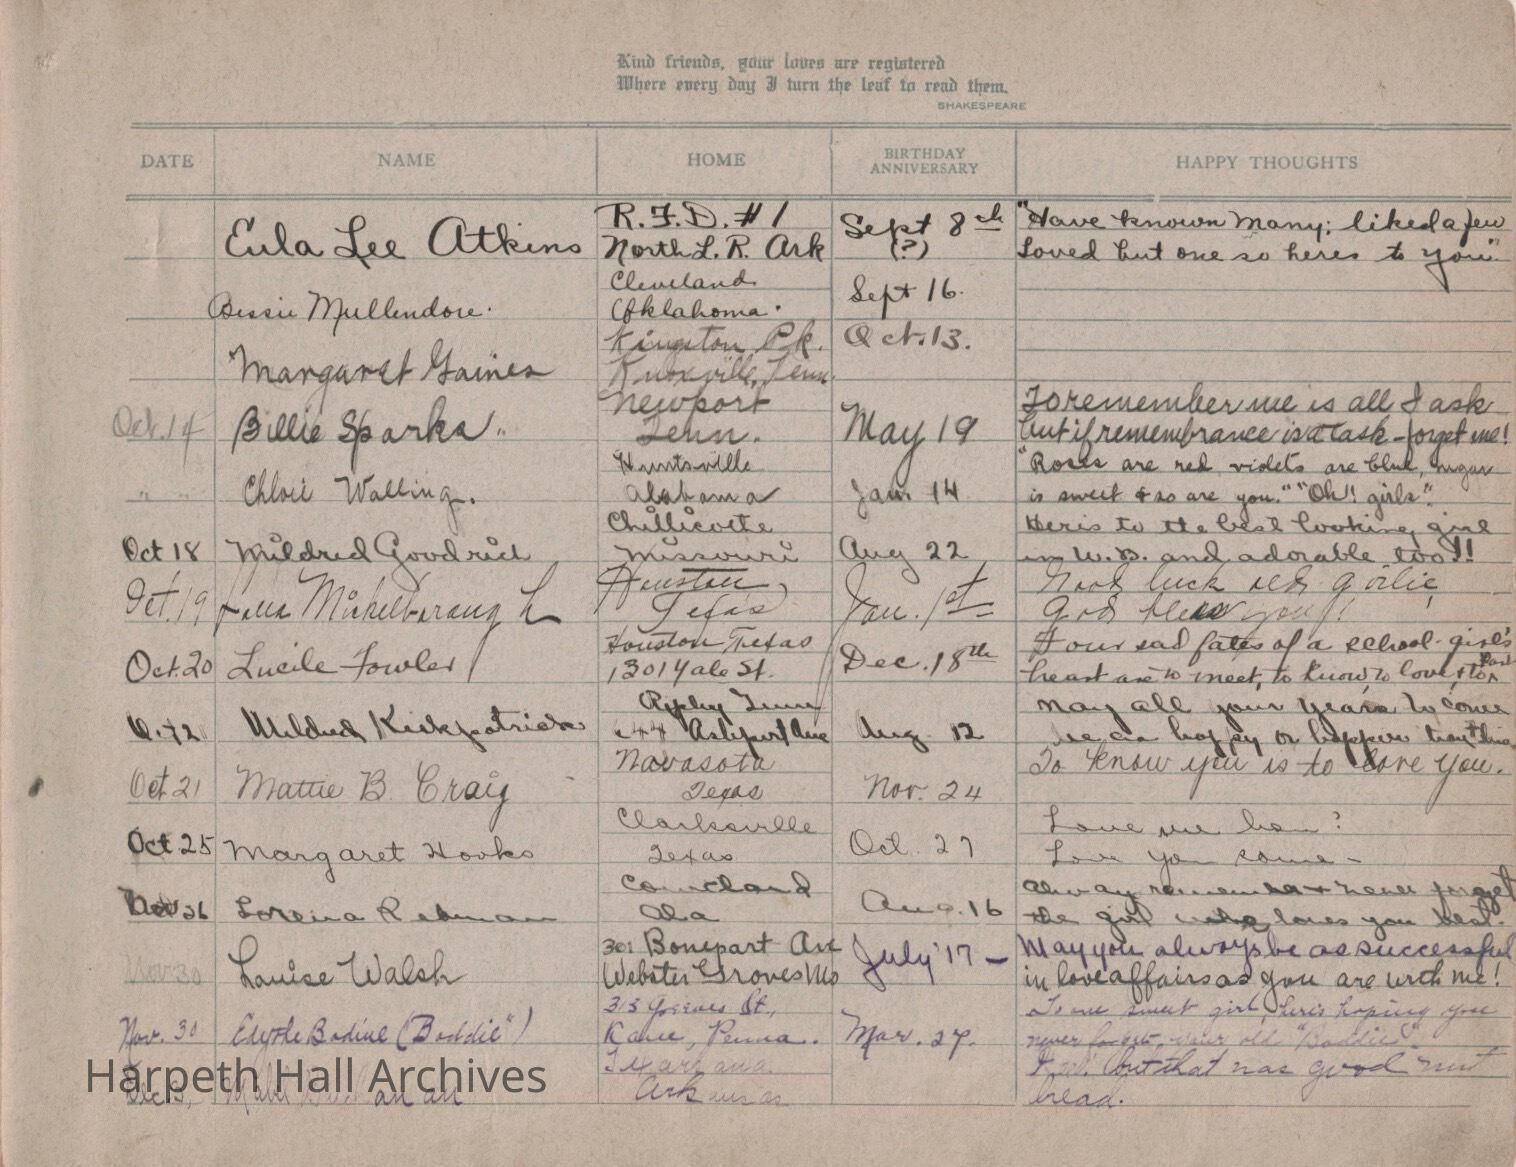 Kind friends, your loves are registered
Where every day I turn the leaf to read them.
SHAKESPEARE
DATE NAME HOME BIRTHDAY ANNIVERSARY HAPPY THOUGHTS
R.F.D. #1 "Have known many; liked a few
Eula Lee Atkins North L. R. Ark Sept 8th (?) Loved but one so heres to you."
Cleveland
Bessie Mullendore. Oklahoma. Sept 16.
Kingston Pk. Oct. 13.
Margaret Gaines Knoxville, Tenn.
Newport To remember me is all I ask
Oct. 14 Billie Sparks. Tenn. May 19 but if remembrance is a task - forget me!
Huntsville "Roses are red, violets are blue, sugar
" " Chloie Walling. Alabama Jan. 14 is sweet & so are you." "Oh! girls".
Chillicothe Heris to the best looking girl
Oct 18 Mildred Goodrich Missouri Aug 22 in W.B. and adorable too!!
Houston, Good luck old girlie,
Oct. 19 Texas Jan. 1st God bless you!!
Houston Texas Four sad fates of a school-girl's
Oct. 20 Lucile Fowler 1301 Yale St. Dec. 18th heart are to meet, to know, to love, & to part
Ripley Tenn May all your years to come
Mildred Kirkpatrick 144 Ashport Ave Aug. 12 be as happy or happier than this
Navasota To know you is to love you.
Oct 21 Mattie B. Craig Texas Nov. 24
Clarksville Love me hon?
Oct 25 Margaret Hooks Texas Oct. 27 Love you some -
Courtland Alway remember & never forget
26 Lorena Rebman Ala Aug. 16 the girl who loves you best.
301 Bonepart Ave May you always be as successful
Nov 30 Louise Walsh Webster Groves Mo July '17 - in love affairs as you are with me!
313 Greeves St., To one sweet girl, he's hoping you
Nov. 30 Clyde Bodine (Boddie") Kane, Penna. Mar. 27. never forget, your old "Boddie".
Texarkana but that was good nut
Dec 3, Arkansas bread.
Harpeth Hall Archives